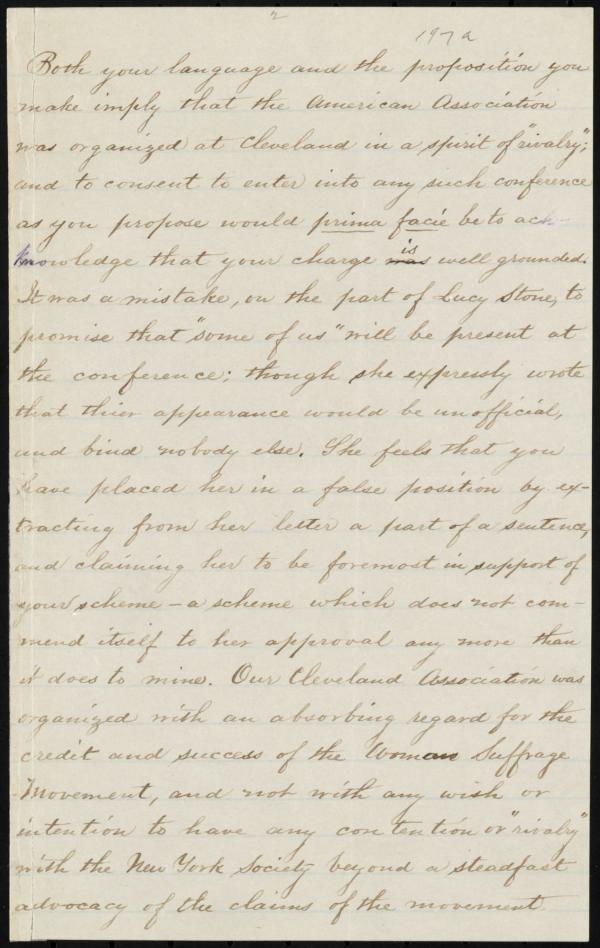 2
197a
Both your language and the proposition you
make imply that the American Association
was organized at Cleveland in a spirit of "rivalry";
and to consent to enter into any such conference
as you propose would prima facie be to ack-
knowledge that your charge was is well grounded.
It was a mistake, on the part of Lucy Stone, to
promise that "some of us" will be present at
the conference; though she expressly wrote
that thier appearance would be unofficial,
and bind nobody else. She feels that you
have placed her in a false position by ex-
tracting from her letter a part of a sentence,
and claiming her to be foremost in support of
your scheme – a scheme which does not com-
mend itself to her approval any more than
it does to mine. Our Cleveland Association was
organized with an absorbing regard for the
credit and success of the Woman Suffrage
Movement, and not with any wish or
intention to have any contention or "rivalry"
with the New York Society beyond a steadfast
advocacy of the claims of the movement